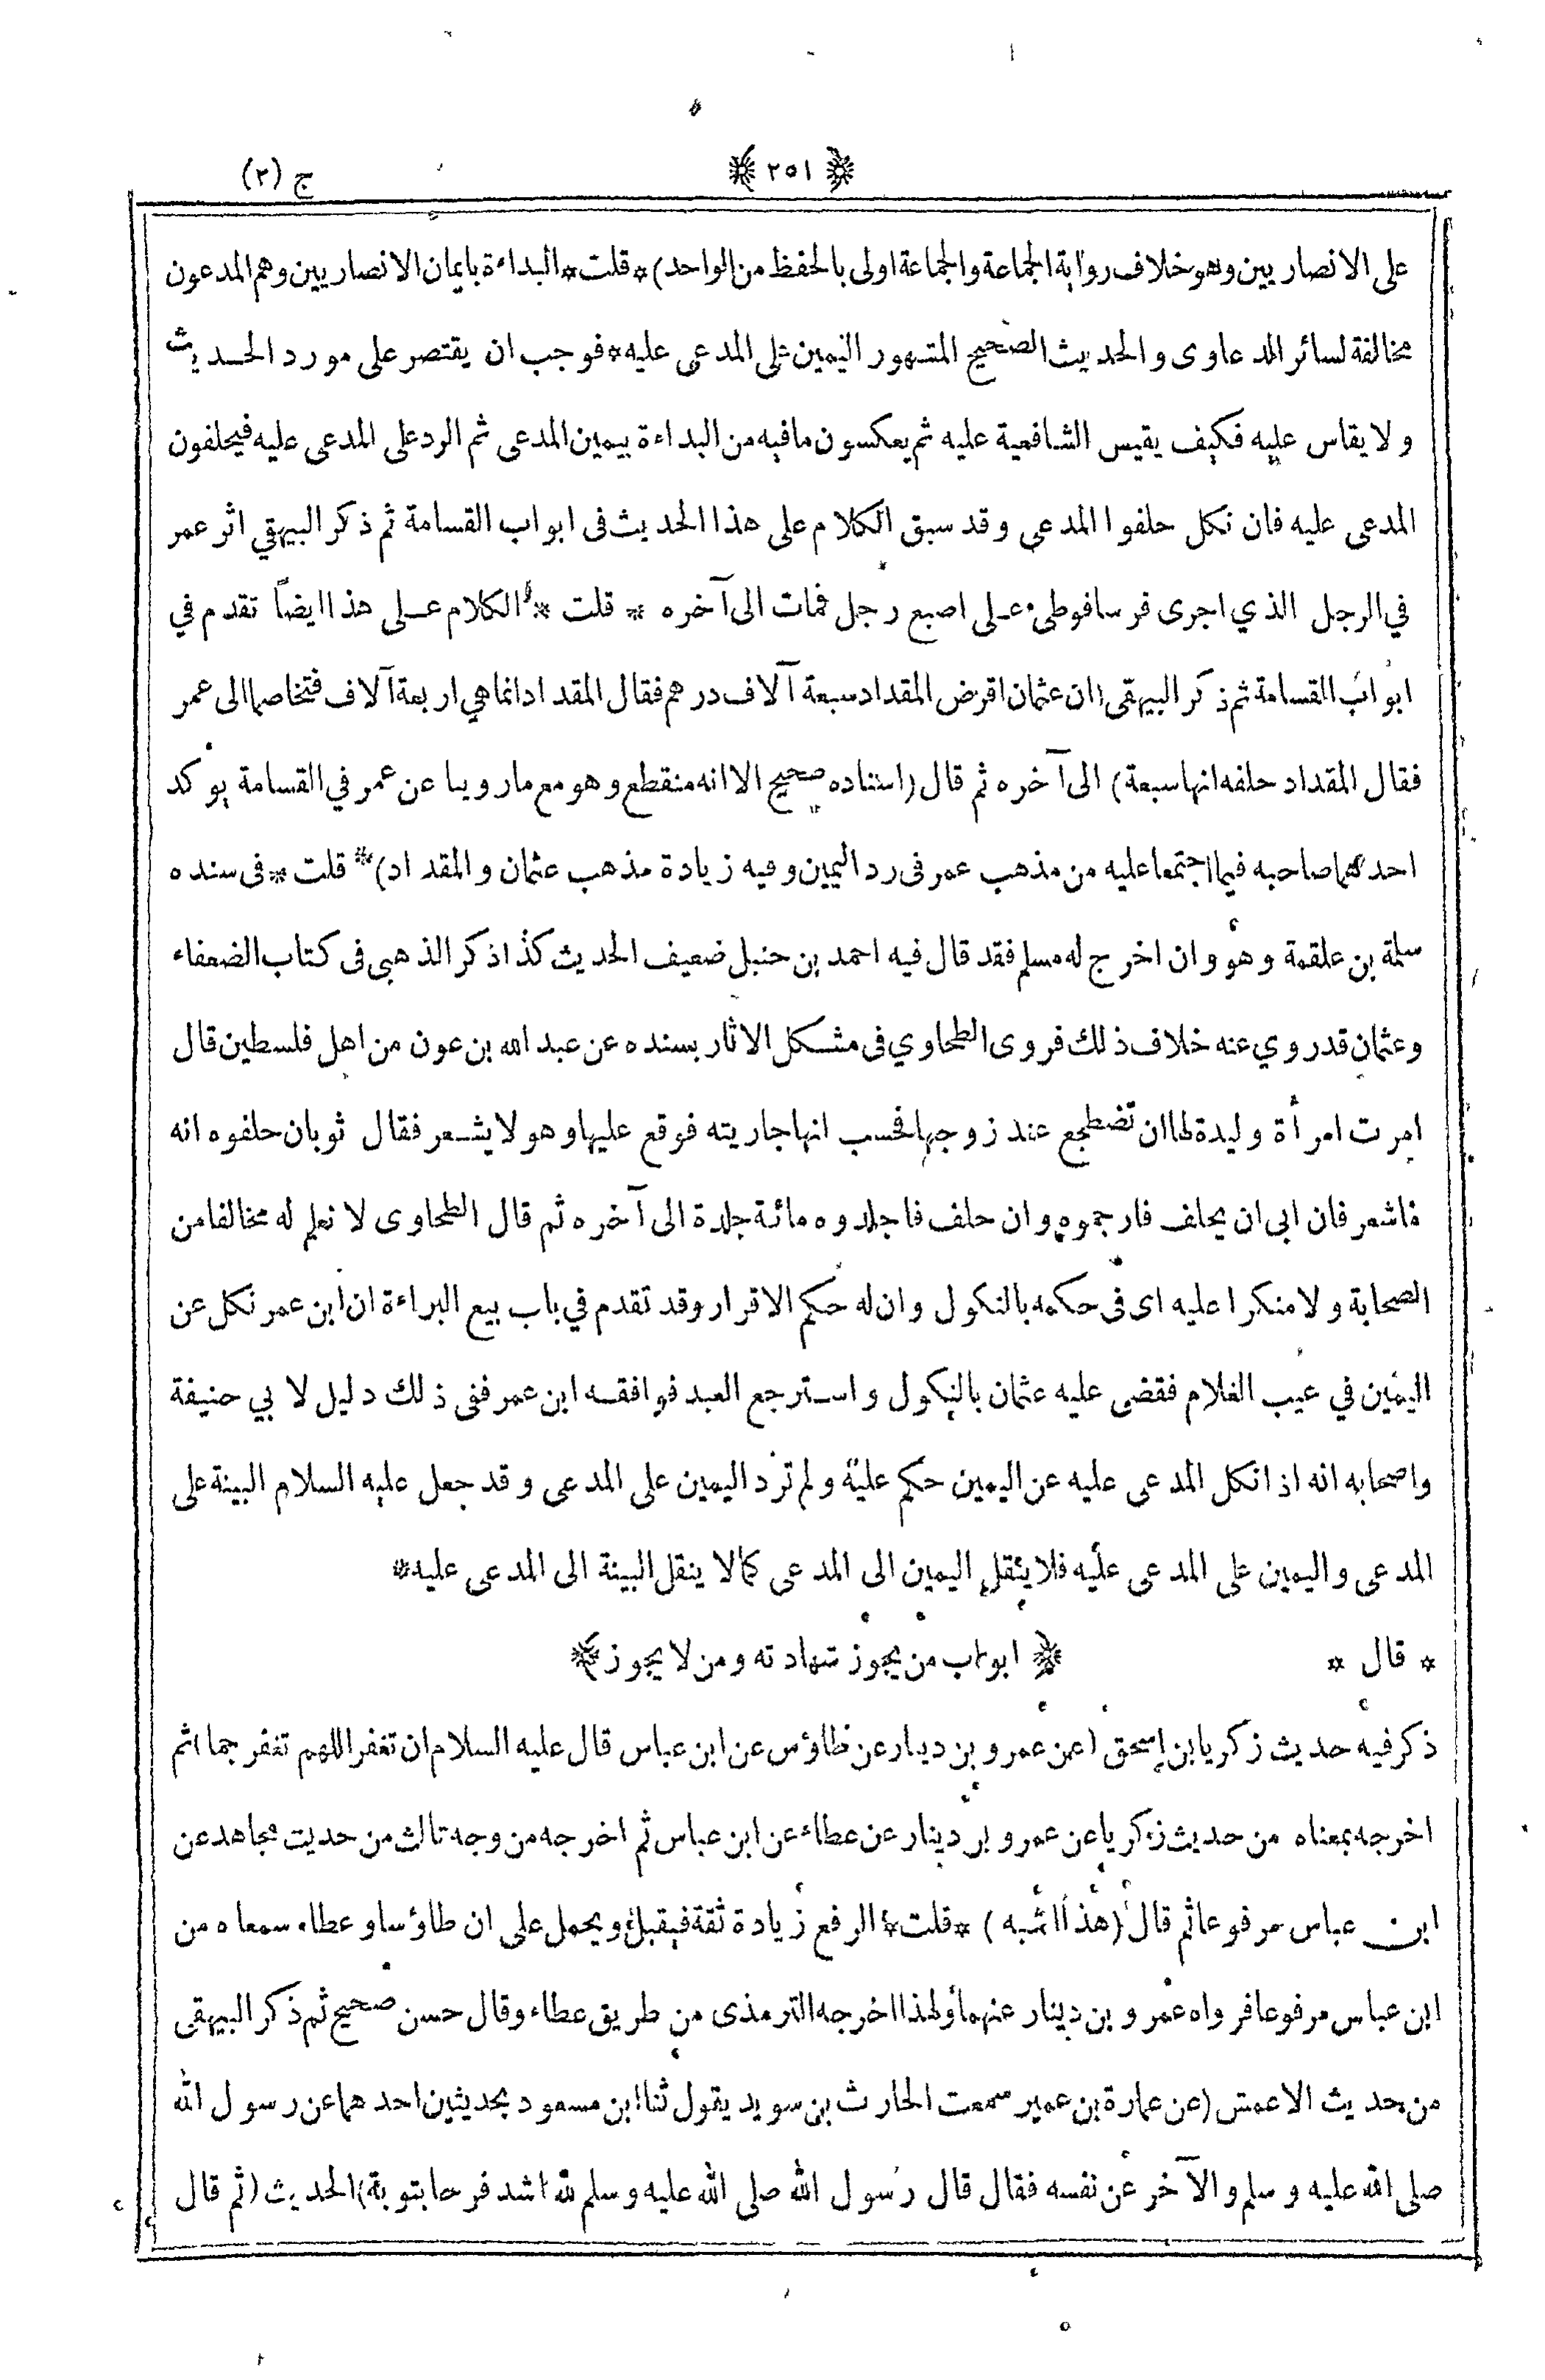 ﴿ ٢٥١ ﴾
ج (٢)
على الانصاريين وهو خلاف رواية الجماعة والجماعة اولى بالحفظ من الواحد) * قلت * البداءة بايمان الانصاريين وهم المدعون
مخالفة لسائر الدعاوى والحديث الصحيح المشهور اليمين على المدعى عليه * فوجب ان يقتصر على مورد الحديث
ولا يقاس عليه فكيف يقيس الشافعية عليه ثم يعكسون ما فيه من البداءة بيمين المدعى ثم الرد على المدعى عليه فيحلفون
المدعى عليه فان نكل حلفوا المدعى وقد سبق الكلام على هذا الحديث فى ابواب القسامة ثم ذكر البيهقي اثر عمر
في الرجل الذي اجرى فرسا فوطىء على اصبع رجل فمات الى آخره * قلت * الكلام على هذا ايضاً تقدم في
ابواب القسامة ثم ذكر البيهقى (ان عثمان اقرض المقداد سبعة آلاف درهم فقال المقداد انما هي اربعة آلاف فتخاصما الى عمر
فقال المقداد حلفه انها سبعة) الى آخره ثم قال (اسناده صحيح الا انه منقطع وهو مع ما روينا عن عمر في القسامة يوكد
احدهما صاحبه فيما اجتمعا عليه من مذهب عمر فى رد اليمين وفيه زيادة مذهب عثمان والمقداد) * قلت * فى سنده
سلمة بن علقمة وهو وان اخرج له مسلم فقد قال فيه احمد بن حنبل ضعيف الحديث كذا ذكر الذهبى فى كتاب الضعفاء
وعثمان قد روي عنه خلاف ذلك فروى الطحاوي فى مشكل الآثار بسنده عن عبد الله بن عون من اهل فلسطين قال
امرت امرأة وليدة لها ان تضطجع عند زوجها فحسب انها جاريته فوقع عليها وهو لا يشعر فقال ثوبان حلفوه انه
ما شعر فان ابى ان يحلف فارجموه وان حلف فاجلدوه مائة جلدة الى آخره ثم قال الطحاوى لا نعلم له مخالفا من
الصحابة ولا منكرا عليه اى فى حكمه بالنكول وان له حكم الاقرار وقد تقدم في باب بيع البراءة ان ابن عمر نكل عن
اليمين في عيب الغلام فقضى عليه عثمان بالنكول واسترجع العبد فوافقه ابن عمر ففى ذلك دليل لابي حنيفة
واصحابه انه اذا نكل المدعى عليه عن اليمين حكم عليه ولم ترد اليمين على المدعى وقد جعل عليه السلام البينة على
المدعى واليمين على المدعى عليه فلا ينقل اليمين الى المدعى كما لا ينقل البينة الى المدعى عليه *
* قال * ﴿ ابواب من يجوز شهادته ومن لا يجوز ﴾
ذكر فيه حديث زكريا بن اسحق (عن عمرو بن دينار عن طاؤس عن ابن عباس قال عليه السلام ان تغفر اللهم تغفر جما ثم
اخرجه بمعناه من حديث زكريا عن عمرو بن دينار عن عطاء عن ابن عباس ثم اخرجه من وجه ثالث من حديث مجاهد عن
ابن عباس مرفوعا ثم قال (هذا اشبه) * قلت * الرفع زيادة ثقة فيقبل ويحمل على ان طاؤسا وعطاء سمعاه من
ابن عباس مرفوعا فرواه عمرو بن دينار عنهما ولهذا اخرجه الترمذى من طريق عطاء وقال حسن صحيح ثم ذكر البيهقى
من حديث الاعمش (عن عمارة بن عمير سمعت الحارث بن سويد يقول ثنا ابن مسعود بحديثين احدهما عن رسول الله
صلى الله عليه وسلم والآخر عن نفسه فقال قال رسول الله صلى الله عليه وسلم لله اشد فرحا بتوبة) الحديث (ثم قال